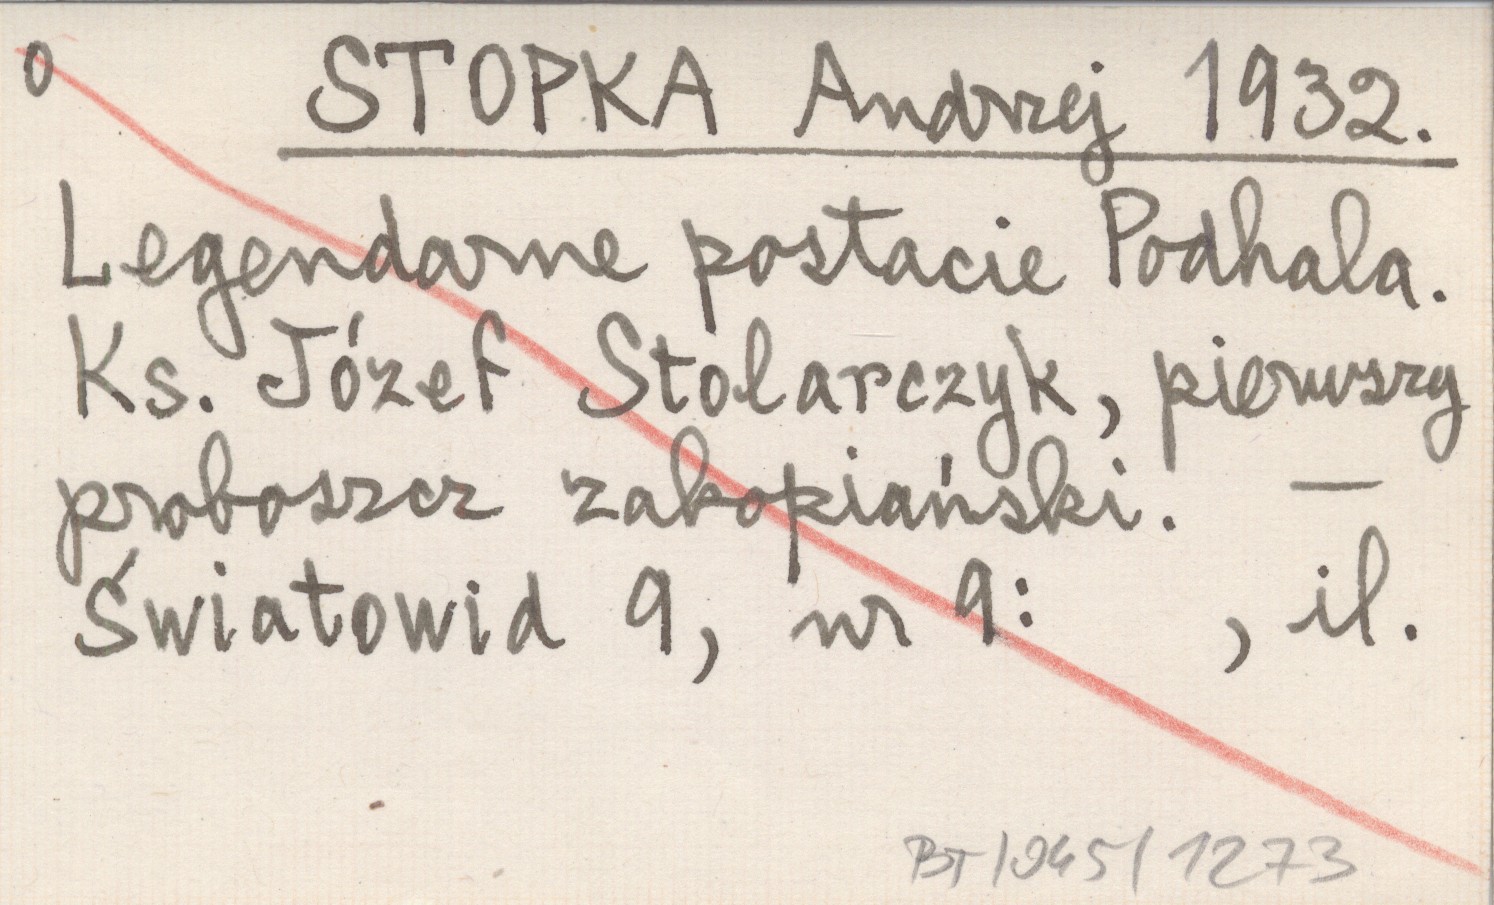 0 STOPKA Andrzej 1932.
Legendarne postacie Podhala.
Ks. Józef Stolarczyk, pierwszy
proboszcz zakopiański. —
Światowid 9, nr 9: , il.
BT/045/1273